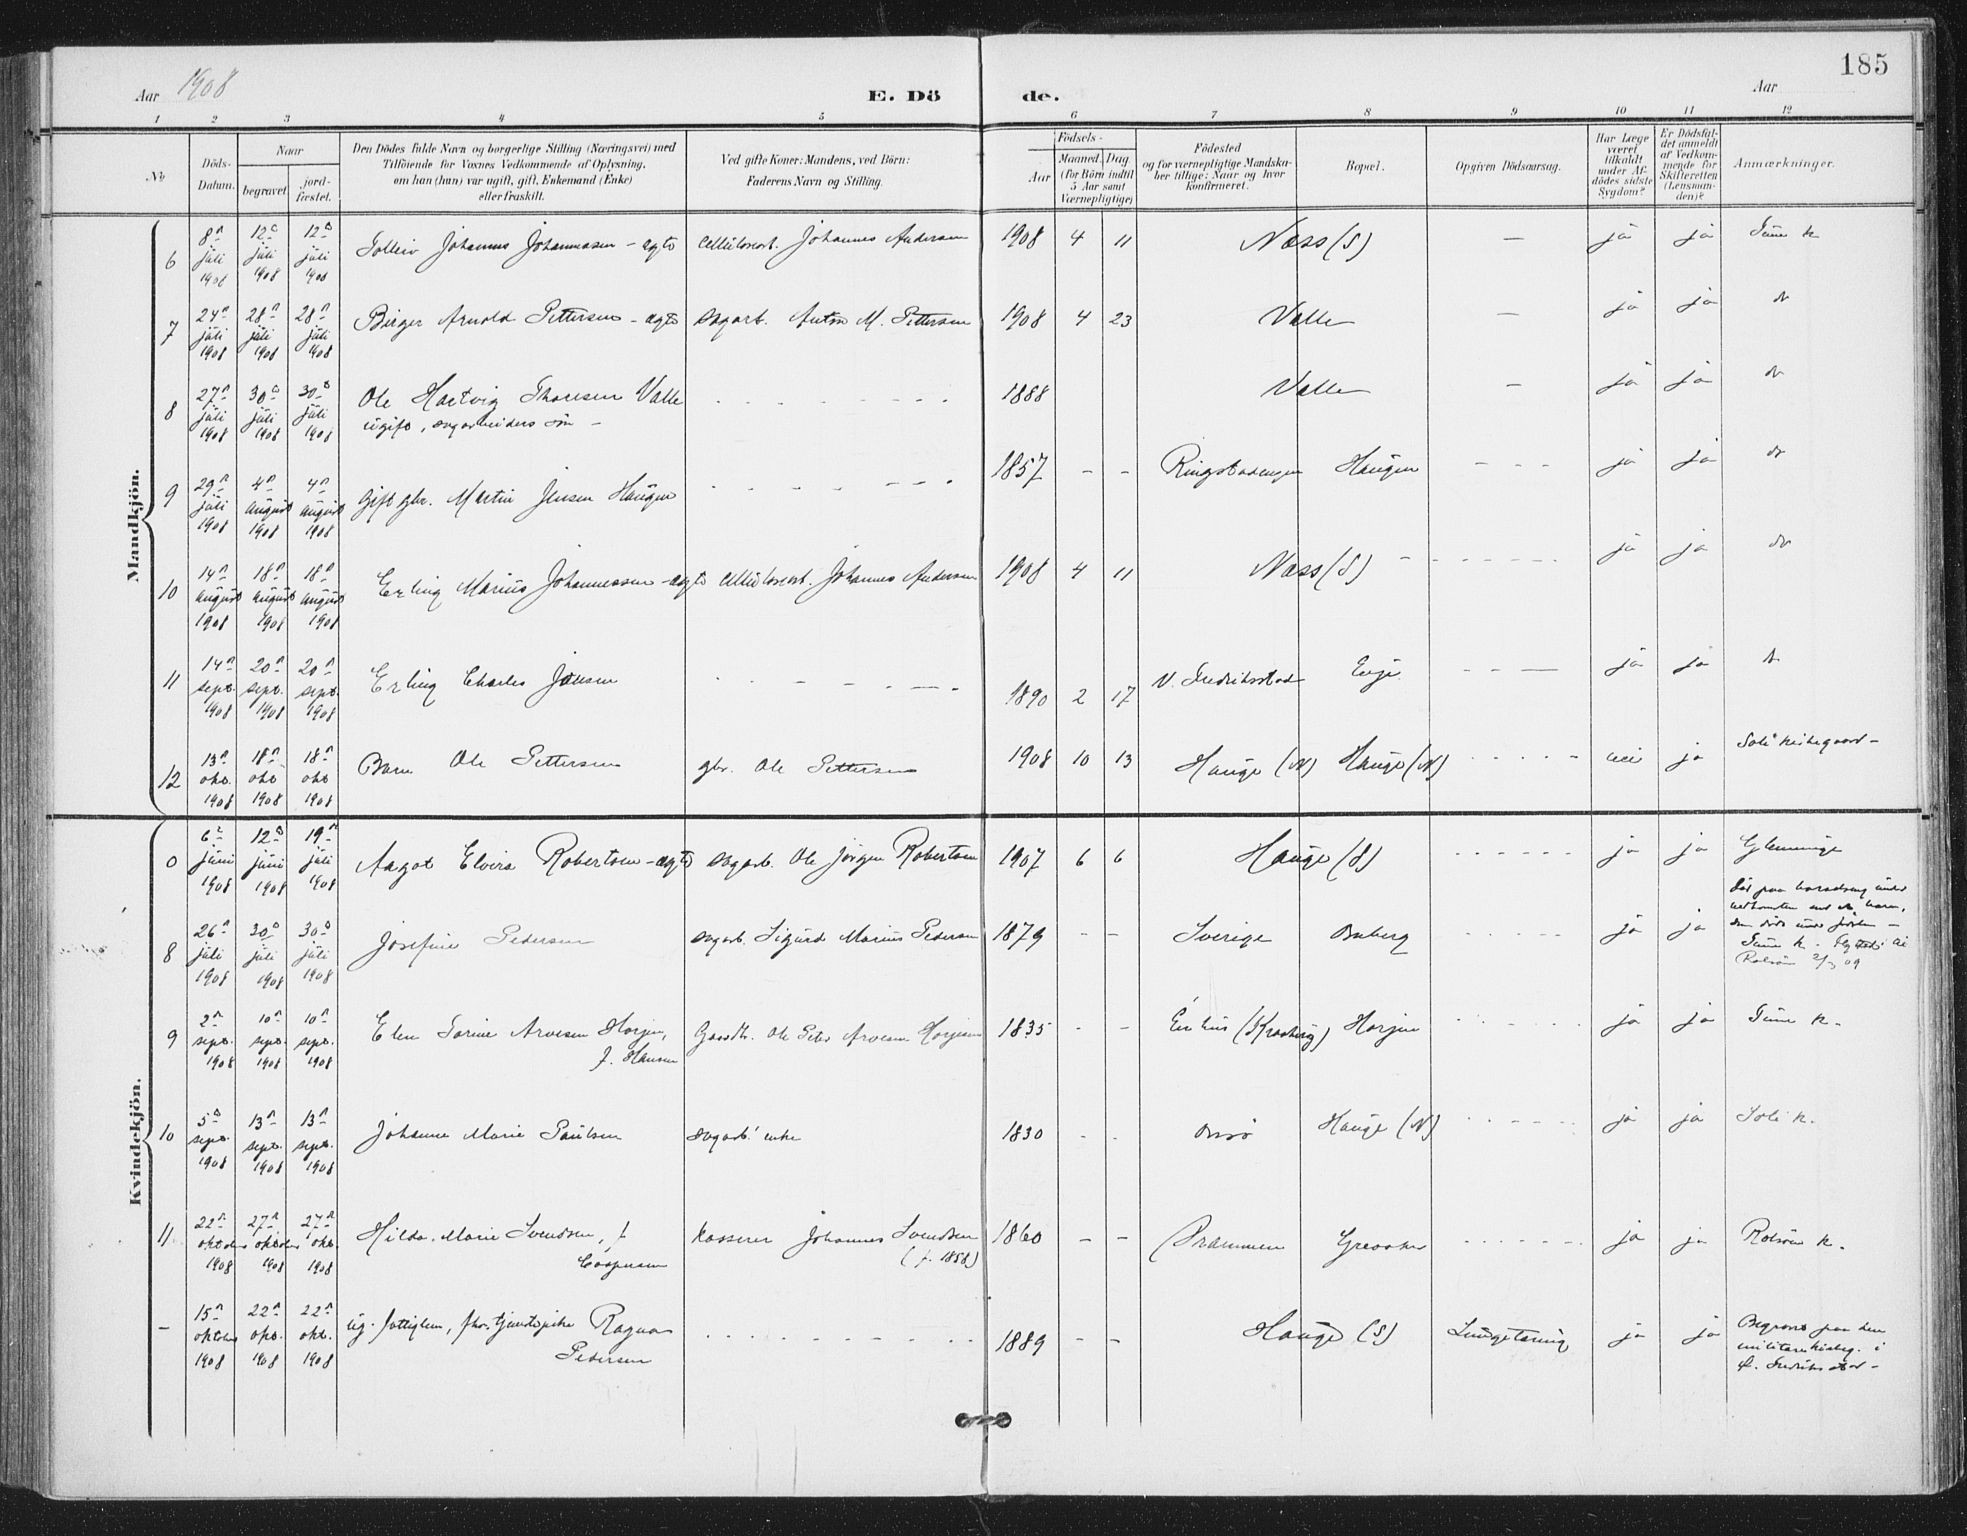 185
Aar 1908
E. Dö de.
Aar
1 2 3 4 5 6 7 8 9 10 11 12
No
Döds-Datum.
Naar
begravet
jord-fæstet.
Den Dödes fulde Navn og borgerlige Stilling (Næringsvei) med
Tilföiende for Voxnes Vedkommende af Oplysning,
om han (hun) var ugift, gift, Enkemand (Enke)
eller fraskilt.
Ved gifte Koner: Mandens, ved Börn:
Faderens Navn og Stilling.
Födsels-
Aar
Maaned. Dag.
(for Börn indtil
5 Aar samt
Værnepligtige)
Födested
og for værnepligtige Mandska-
ber tillige: Naar og hvor
Konfirmeret.
Bopæl.
Opgiven Dödsaarsag.
Har Læge
været
tilkaldt
under Af-
dödes sidste
Sygdom?
Er Dödsfal-
det anmeldt
af Vedkom-
mende for
Skifteretten
(Lensman-
den)?
Anmærkninger.
Mandkjön.
6 8n juli 1908 12te juli 1908 12te juli 1908 Johannes Johannessen - ægte Johannes Andersen 1908 4 11 Næss (S) — ja ja Tune k
7 24n juli 1908 28n juli 1908 28n juli 1908 Birger Arnold Pettersen - ægte sagarb. Anton M. Pettersen 1908 4 23 Valle — ja ja do
8 27n juli 1908 30te juli 1908 30te juli 1908 Ole Hartvig Thoresen Valle
ugift, sagarbeiders søn - 1888 Valle — ja ja do
9 29n juli 1908 4n august 1908 4n august 1908 Gift gbr. Martin Jensen Haugen 1857 - - Haugen ja ja do
10 14n august 1908 18n august 1908 18n august 1908 Erling Marius Johannessen - ægte Johannes Andersen 1908 4 11 Næss (S) ja ja do
11 14n sept. 1908 20n sept. 1908 20n sept. 1908 Erling Charles Jensen 1890 2 17 V. Fredriksstad Enge ja ja do
12 13n okt. 1908 18n okt 1908 18n okt 1908 Barn Ole Pettersen gbr. Ole Pettersen 1908 10 13 Hauge (N) Hauge (N) nei ja Soli kirkegaard -
Kvindekjön.
0 6te juni 1908 12te juni 1908 19n juli 1908 Aagot Elvira Robertsen - ægte sagarb. Ole Jørgen Robertsen 1907 6 6 Hauge (S) ja ja Glemminge
8 26n juli 1908 30te juli 1908 30te juli 1908 Josefine Pedersen sagarb. Sigurd Marius Pedersen 1879 - - Sverige ja ja
Død paa barselseng
den døde under fødslen -
Tune k. Flyttet til
Rolsøe 2/3 09
9 2n sept. 1908 10n sept. 1908 10n sept. 1908 Elen Sorine Arvesen Horgen,
f. Hansen Gaardbr. Ole Peter Arvesen Horgen 1835 - - Horgen ja ja Tune k.
10 5te sept. 1908 13n sept. 1908 13n sept. 1908 Johanne Marie Paulsen sagarb. enke 1830 - - Onsø Hauge (N) ja ja Soli k.
11 22n oktober 1908 27n oktober 1908 27n okt. 1908 Hilda Marie Svendsen, f. Kasserer Johannes Svendsen
(f. 1858) 1860 - - Drammen Greaaker ja ja Rolsøe k.
- 15n oktober 1908 22n okt. 1908 22n okt. 1908 ug. fattiglem, fhv. tjenestepike Ragna
Pedersen 1889 - - Hauge (S) Lungetæring ja ja Begravet paa den
militære kirkeg. i
G. Fredriksstad -